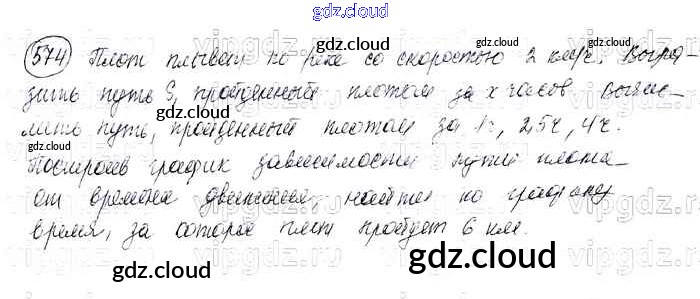 gdz.cloud
574 Плот плывет по реке со скоростью 2 км/ч. Выра-
зить путь S, пройденный плотом за x часов Вычис-
лить путь, пройденный плотом за 1ч, 2,5ч, 4ч.
Построив график зависимости пути плота
от времени движения, найти по графику
время, за которое плот пройдет 6 км.
gdz.cloud